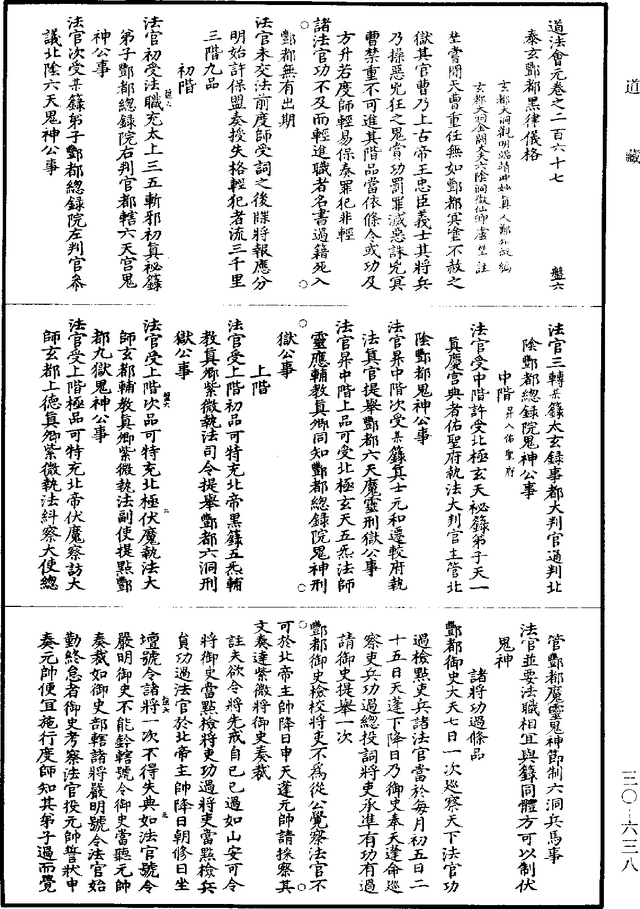 道藏
道法會元卷之二百六十七
盤六
泰玄酆都黑律儀格
坐嘗聞天曹重任無如酆都冥塗不赦之
獄其官曹乃上古帝王忠臣義士其將兵
乃操惡兇狂之鬼賞功罰罪滅惡誅兇冥
曹禁重不可進其階品當依條令或功及
方升若度師輕易保奏罪犯非輕
諸法官功不及而輕進職者名書過籍死入
酆都無有出期
法官未交法前度師受詞之後牒將報應分
明始許保盟奏授失格輕犯者流三千里
三階九品
初階
法官初受法職充太上三五斬邪初真祕籙
弟子酆都總録院右判官都轄六天宮鬼
神公事
法官次受某籙弟子酆都總録院左判官叅
議北陰六天鬼神公事
法官三轉某籙太玄録事都大判官通判北
陰酆都總録院鬼神公事
中階昇入佑聖府
法官受中階許受北極玄天祕籙弟子天一
真慶宮典者佑聖府執法大判官主管北
陰酆都鬼神公事
法官昇中階次受某籙其士元和遷較府執
法真官提舉酆都六天魔靈刑獄公事
法官昇中階上品可受北極玄天五炁法師
靈應輔教真卿同知酆都總録院鬼神刑
獄公事
上階
法官受上階初品可特充北帝黑籙五炁輔
教真卿紫微執法司令提舉酆都六洞刑
獄公事
法官受上階次品可特充北極伏魔執法大
師玄都輔教真卿紫微執法副使提點酆
都九獄鬼神公事
法官受上階極品可特充北帝伏魔察訪大
師玄都上德真卿紫微執法糾察大使總
管酆都魔靈鬼神節制六洞兵馬事
法官並要法職相宜與籙同體方可以制伏
鬼神
諸將功過條品
酆都御史大夫七日一次巡察天下法官功
過檢點吏兵諸法官當於每月初五日二
十五日天蓬下降日乃御史奉天蓬命巡
察吏兵功過總投詞將吏承準有功有過
請御史提舉一次
酆都御史檢校將吏不為從公覺察法官不
可於北帝主帥降日申天蓬元帥請採察其
文奏達紫微將御史奏裁
註夫欲令將先戒自已已過如山安可令
將御史當點檢將吏功過將吏當點檢兵
員功過法官於北帝主帥降日朝修日坐
壇號令諸將一次不得失典如法官號令
嚴明御史不能鈐轄號令御史當聽元帥
奏裁如御史部轄諸將嚴明號令法官始
勤終怠者御史考察法官投元帥誓狀申
奏元帥便宜施行度師知其弟子過而覺
三〇-六三八